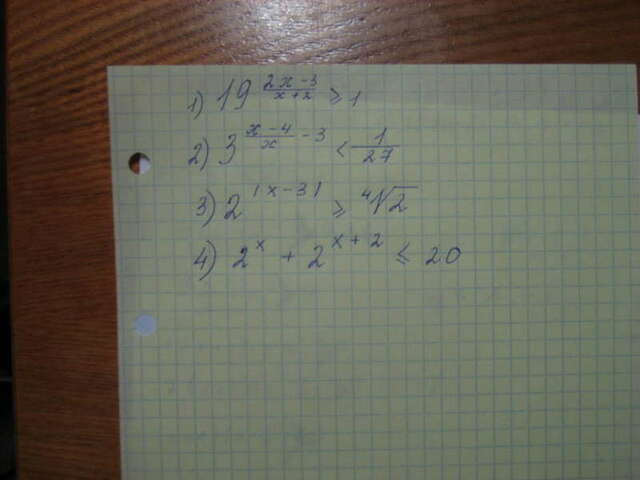 1) 19^((2x-3)/(x+2)) ≥ 1
2) 3^((x-4)/x - 3) < 1/27
3) 2^(|x-3|) ≥ ⁴√2
4) 2^x + 2^(x+2) ≤ 20